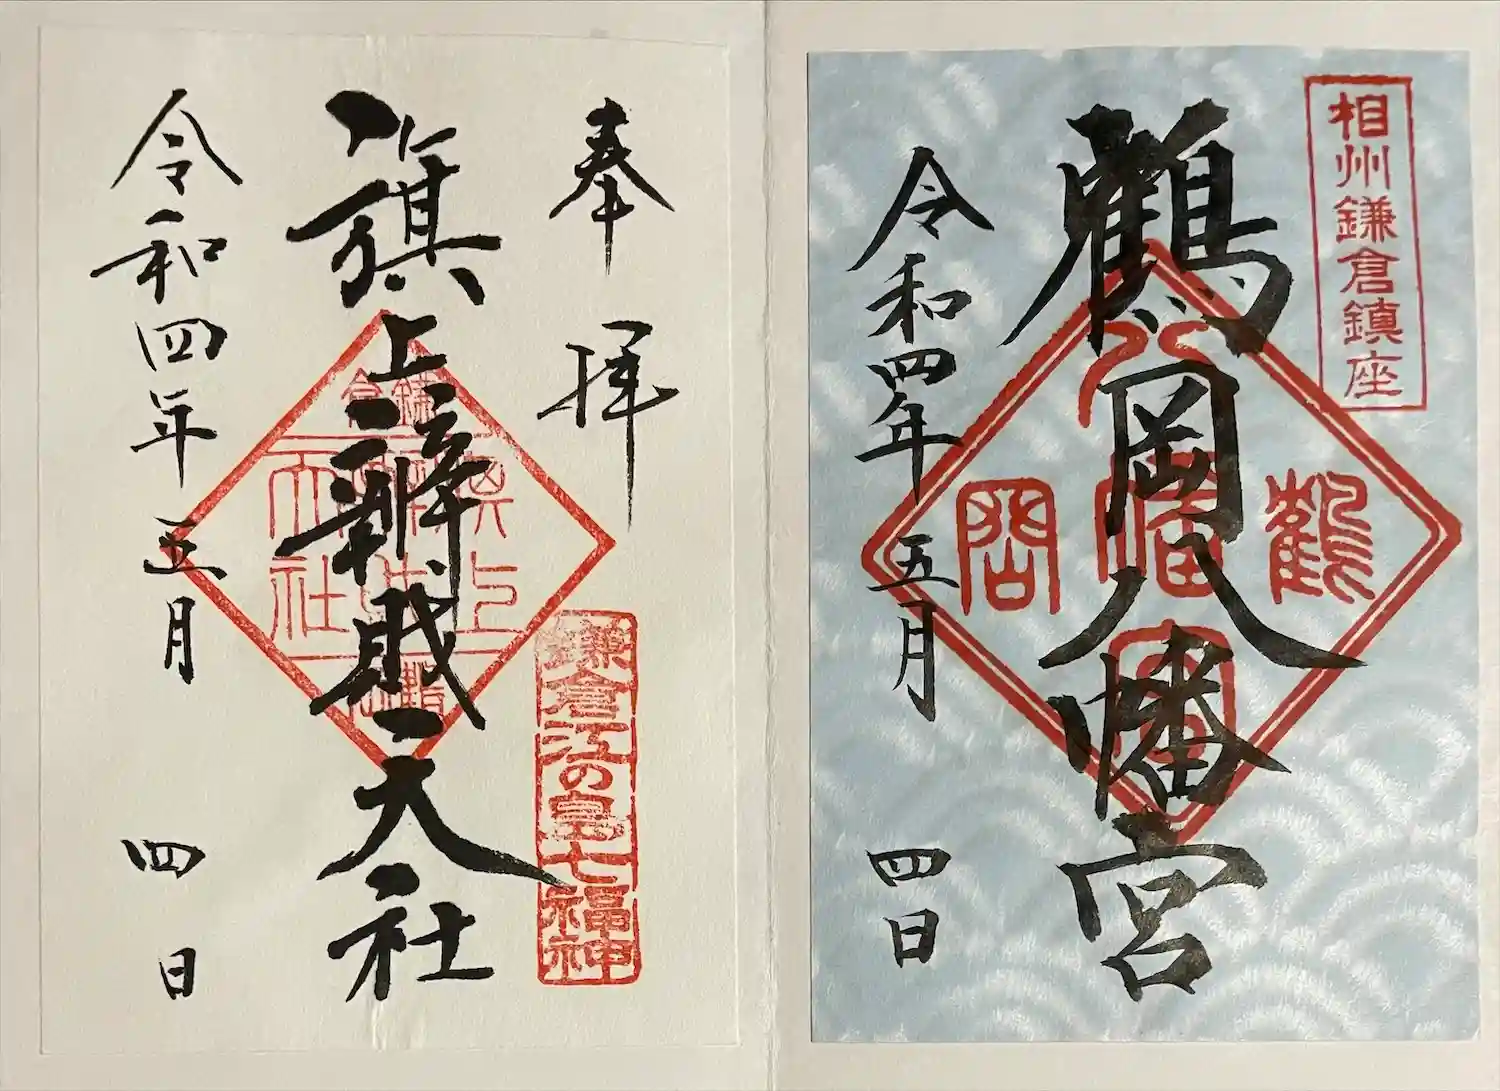 相州鎌倉鎮座
鶴岡八幡宮
鶴岡
八幡宮
令和四年五月四日
奉拝
鎌倉江の島七福神
旗上辨財天社
令和四年五月四日